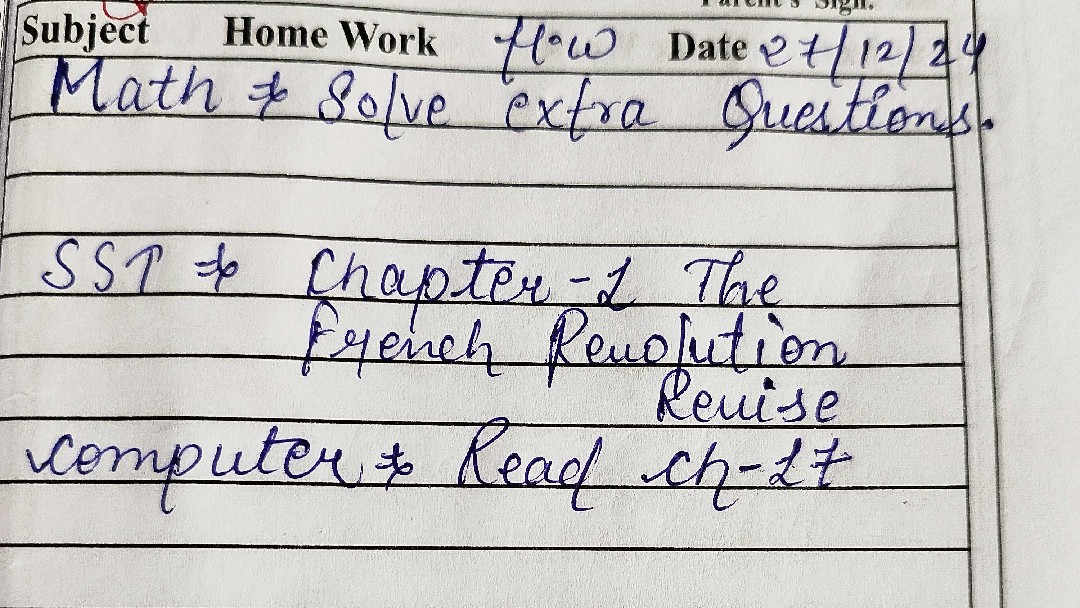 Parent's Sign.
Subject Home Work H.W Date 27/12/24
Math → Solve extra Questions.
SST → Chapter-1 The
French Revolution
Revise
computer → Read ch-17